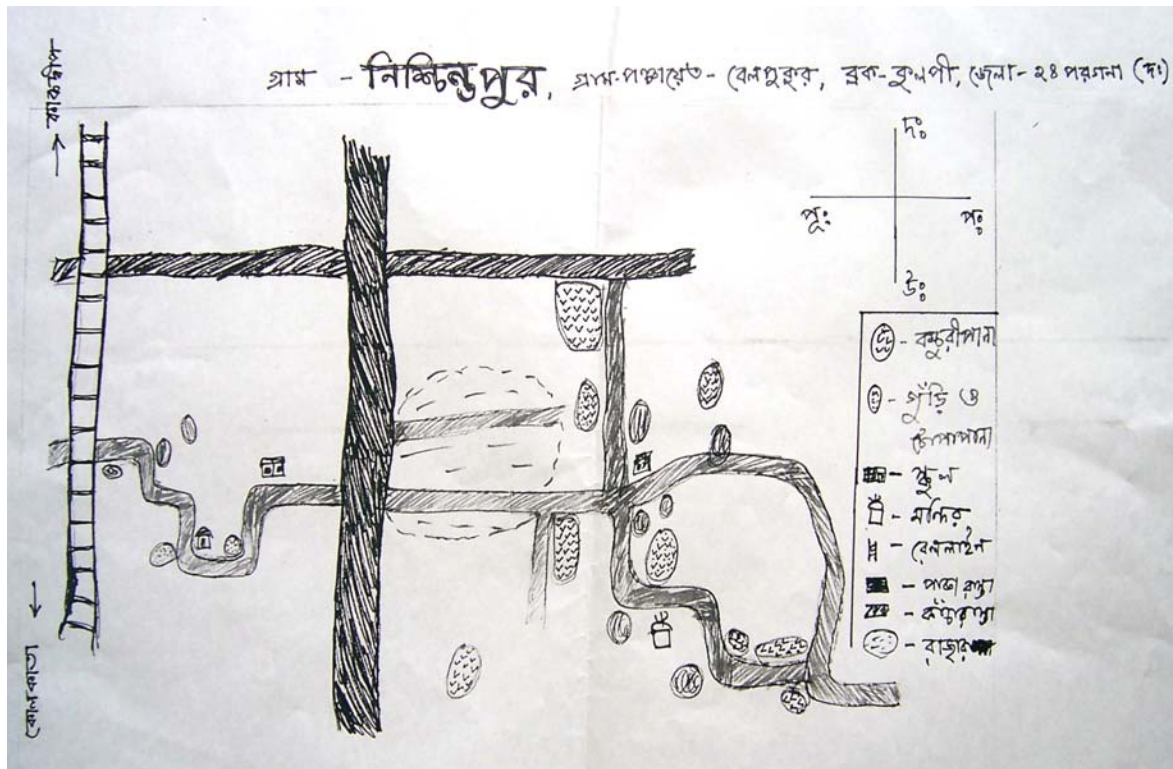 গ্রাম - নিশ্চিন্তপুর, গ্রাম-পঞ্চায়েত - বেলপুকুর, ব্লক-কুলপী, জেলা- ২৪ পরগনা (দঃ)
কাকদ্বীপ
দঃ
পূঃ
পঃ
উঃ
- কচুরীপানা
- গুঁড়ি ও
টোপাপানা
- স্কুল
- মন্দির
- রেললাইন
- পাকা রাস্তা
- কাঁচারাস্তা
- বাজার
কোলকাতা